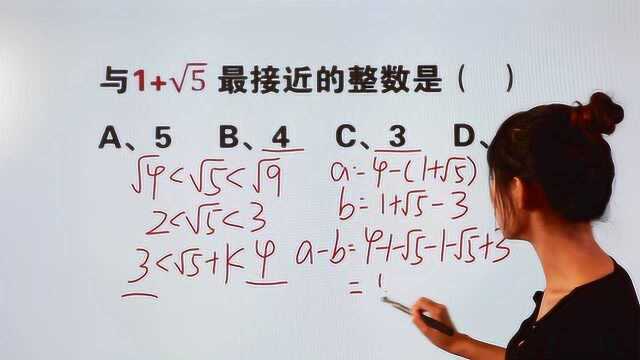 与1+√5 最接近的整数是（ ）
A、5 B、4 C、3 D、
√4<√5<√9
2<√5<3
3<√5+1<4
a=4-(1+√5)
b=1+√5-3
a-b=4-1-√5-1-√5+3
=